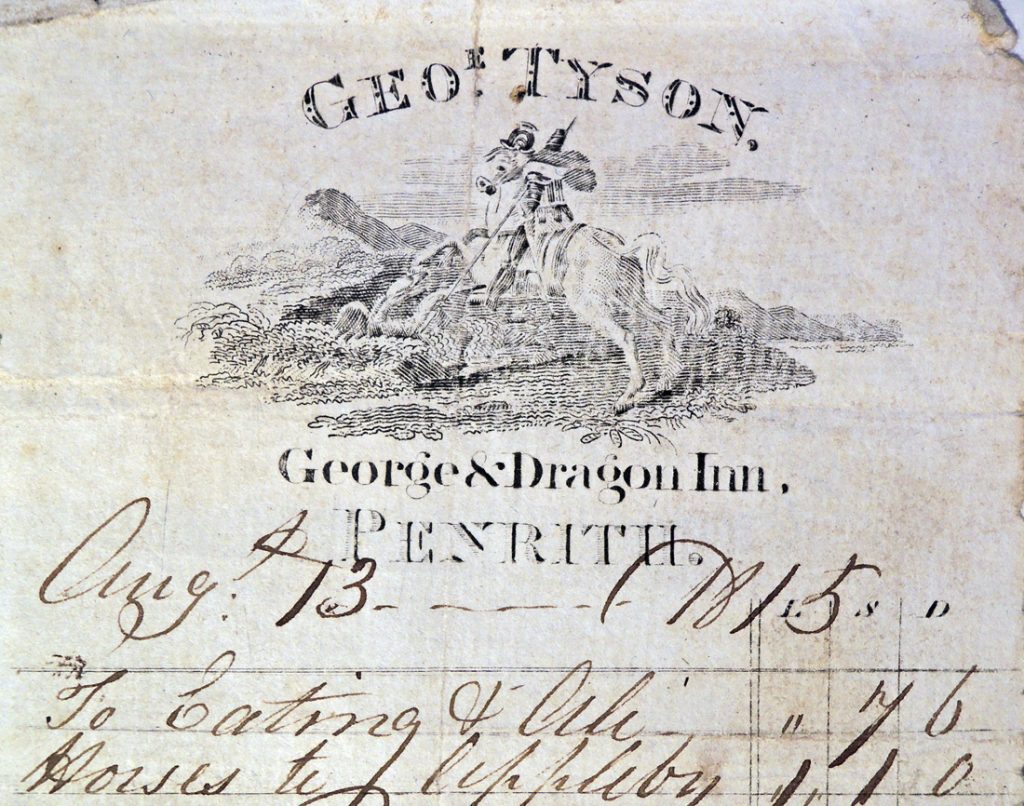 GEOE. TYSON,
George & Dragon Inn,
PENRITH.
Augt 13 1815 L S D
To Eating & Ale " 7 6
Horses to Appleby 1 " 1 " 0